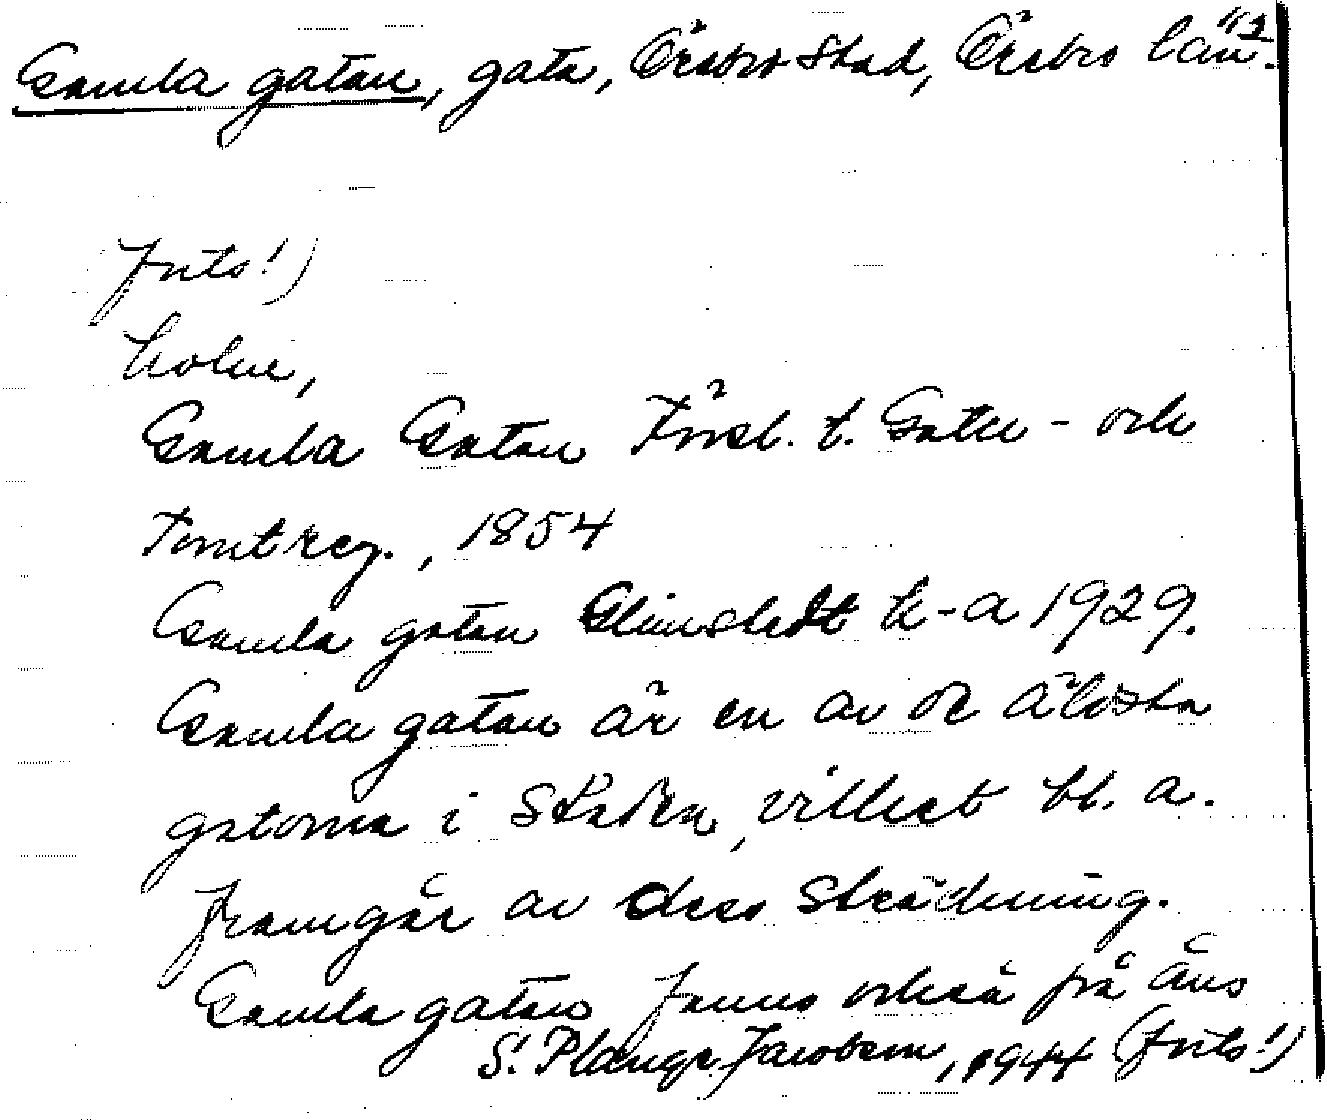 Gamla gatan, gata, Örebro stad, Örebro län. "2
forts!)
holm,
Gamla Gatan Försl. t. Gatu- och
Tomtreg., 1854
Gamla gatan Elmstedt k-a 1929.
Gamla gatan är en av de äldsta
gatorna i staden, vilket bl. a.
framgår av dess sträckning.
Gamla gatan fanns också på äns
S. Plange Jacobson, 1944 (forts!)